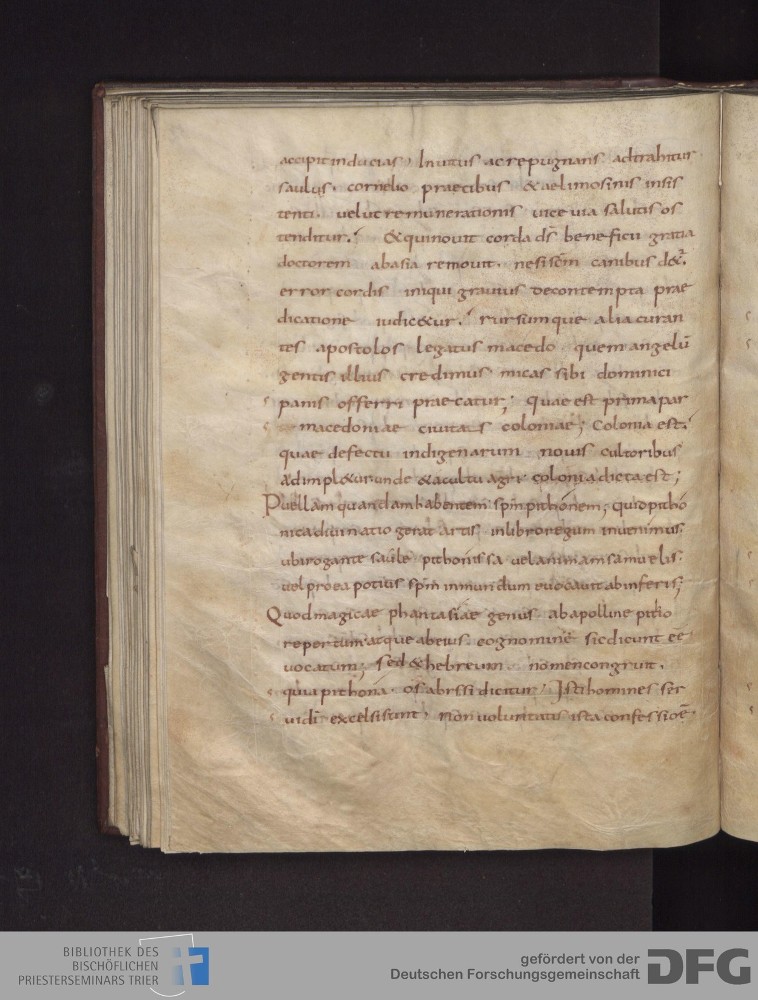 accipit inducias, Inuitus ac repugnans adtrahitur
saulus. cornelio praecibus & aelimosinis insis
tenti. uelut remunerationis uice uia salutis os
tenditur. & qui nouit corda ds beneficii gratia
doctorem ab asia remouit. ne si scm canibus
error cordis iniqui grauius de contempta prae
dicatione iudic&ur. rursumque alia curan
tes apostolos legatus macedo. quem angelū
gentis illius credimus micas sibi dominici
panis offerri praecatur; quae est prima par
macedoniae ciuitas coloniae; Colonia est.
quae defectu indigenarum nouis cultoribus
adimpl&ur unde & a cultu agri colonia dicta est;
Puellam quandam habentem spm pithonem; quid pitho
nica diuinatio gerat artis in libro regum inuenimus.
ubi rogante saule pithonissa uel animam samuelis.
uel pro ea potius spm inmundum euocauit ab inferis;
Quod magicae phantasiae genus ab apolline pitio
repertum atque ab eius cognomine sic dicunt eē
uocatum; sed & hebreum nomen congruit.
quia pithona. os abyssi dicitur; Isti homines ser
ui di excelsi sunt. Non uoluntatis ista confessio ē.
BIBLIOTHEK DES
BISCHÖFLICHEN
PRIESTERSEMINARS TRIER
gefördert von der
Deutschen Forschungsgemeinschaft
DFG